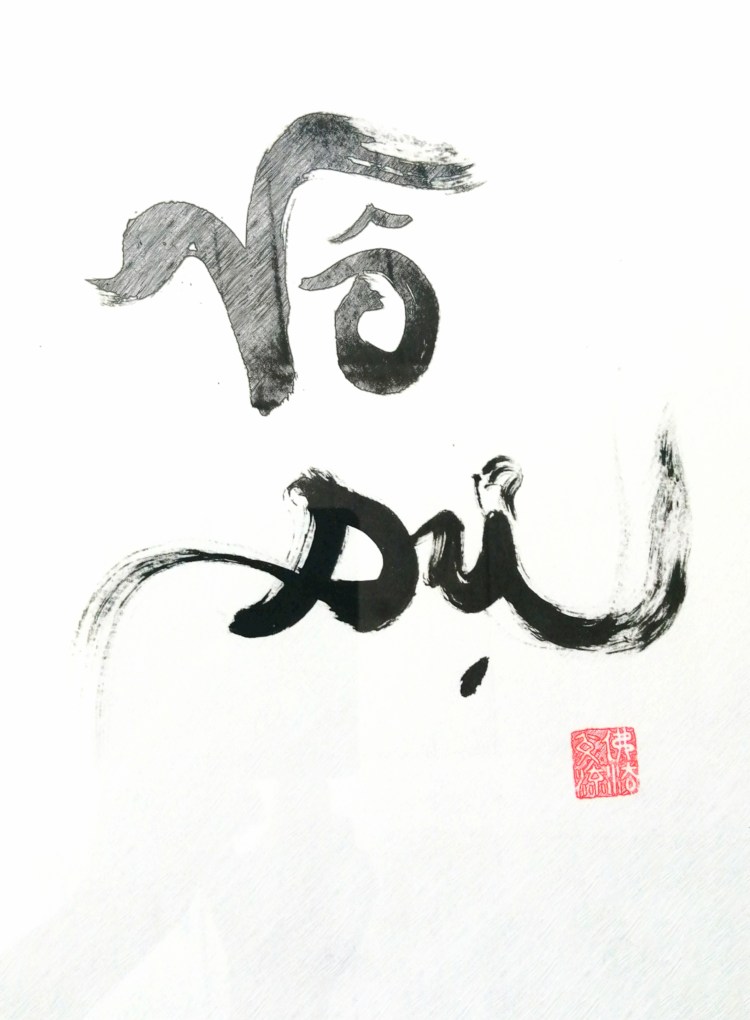 Vô
Sự